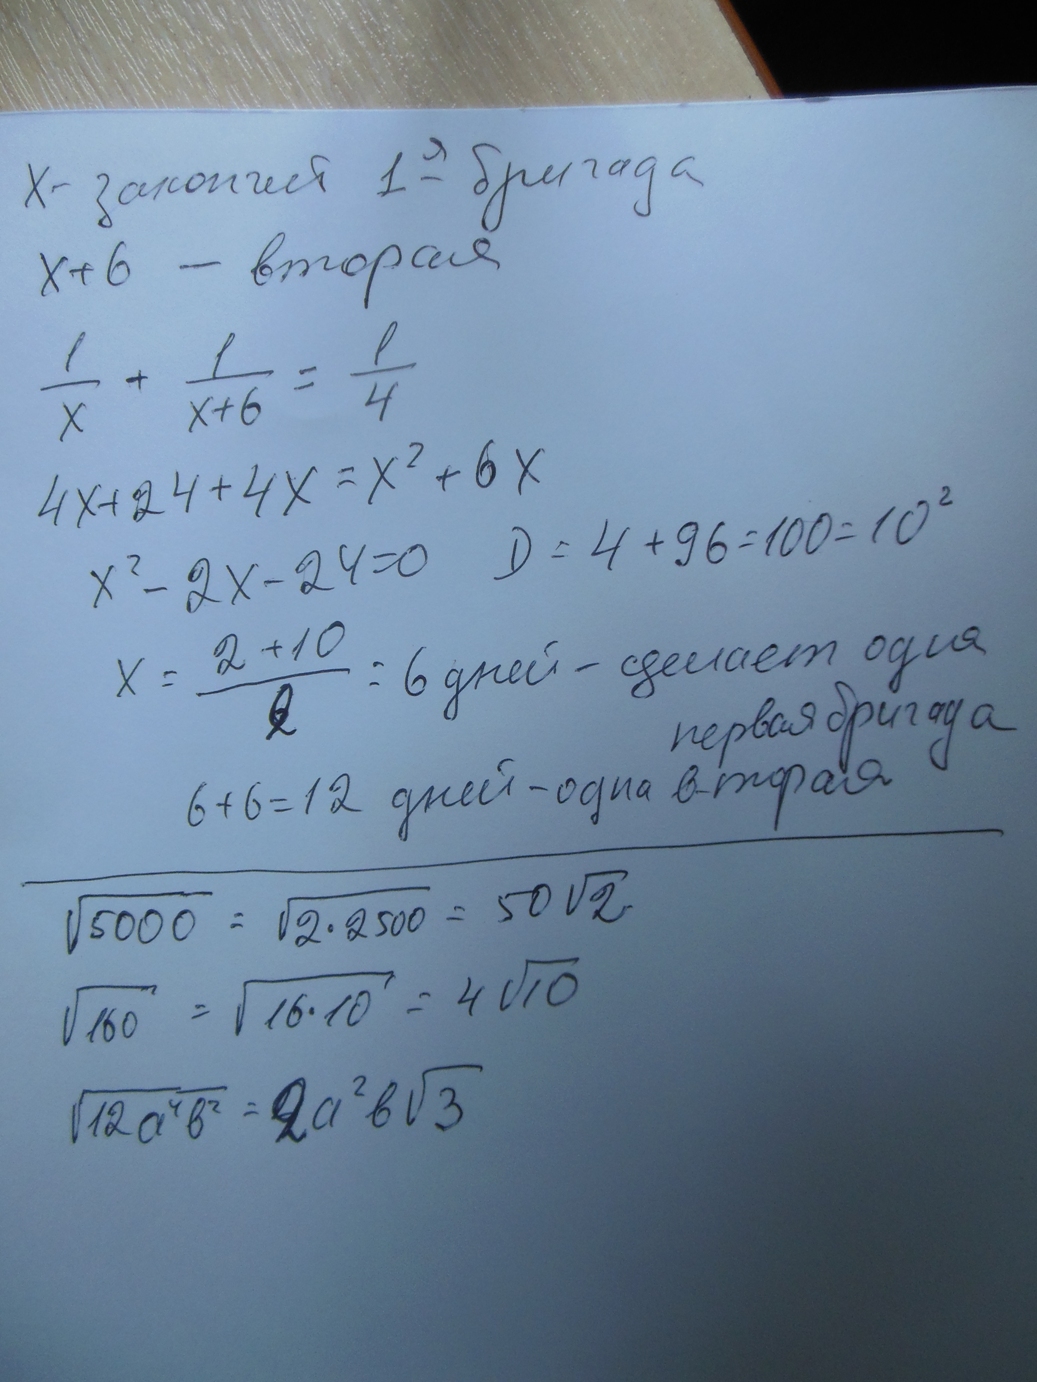 X - закончит 1-я бригада
X+6 — вторая
1/X + 1/(X+6) = 1/4
4X+24+4X=X²+6X
X²-2X-24=0 D=4+96=100=10²
X = (2+10)/2 = 6 дней - сделает одна
первая бригада
6+6=12 дней - одна вторая
√5000 = √2·2500 = 50√2
√160 = √16·10 = 4√10
√12a⁴b² = 2a²b√3